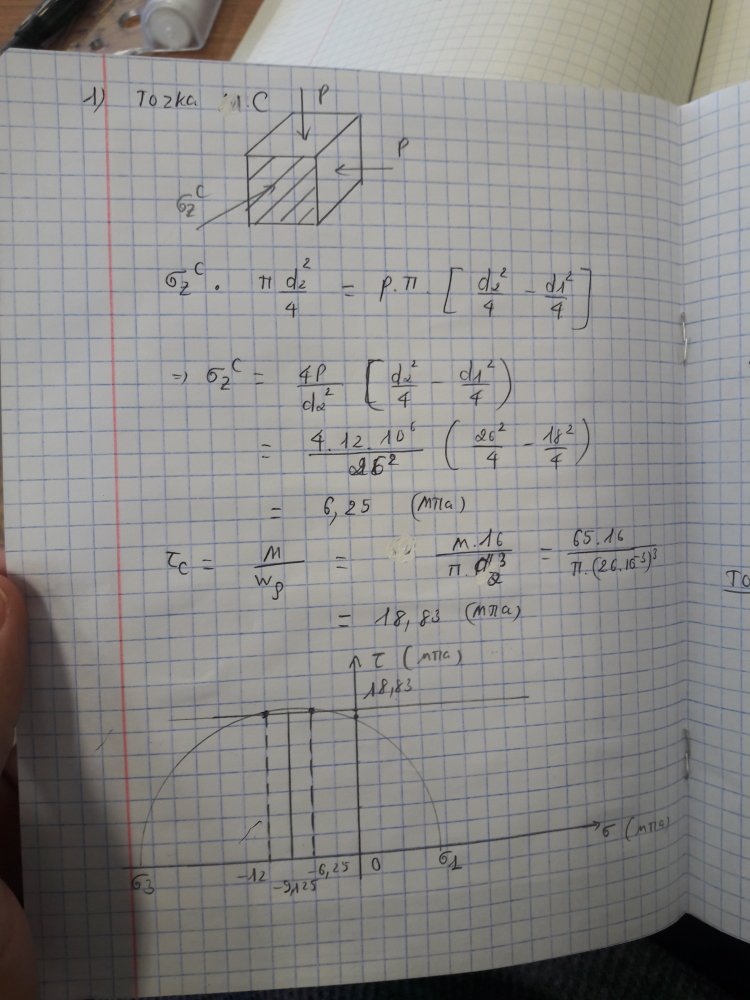 1) Точка м.С
P
P
σz^C
σz^C · π d2²/4 = P.π. [ d2²/4 - d1²/4 ]
=> σz^C = 4P/d2² [ d2²/4 - d1²/4 )
= 4.12.10⁶/26² ( 26²/4 - 18²/4 )
= 6,25 (мПа)
τc = M/Wρ = м.16/π.d2³ = 65.16/π.(26.10⁻³)³
= 18,83 (мПа)
τ (мПа)
18,83
σ (мПа)
σ3 -12 -9,125 -6,25 0 σ1
ТО